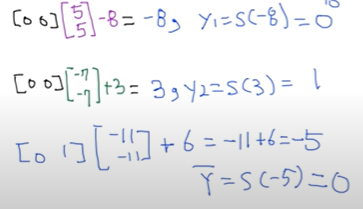 [0 0] [5 5] -8 = -8, y1 = S(-8) = 0
[0 0] [-7 -7] +3 = 3, y2 = S(3) = 1
[0 1] [-11 -11] + 6 = -11+6 = -5
Y = S(-5) = 0